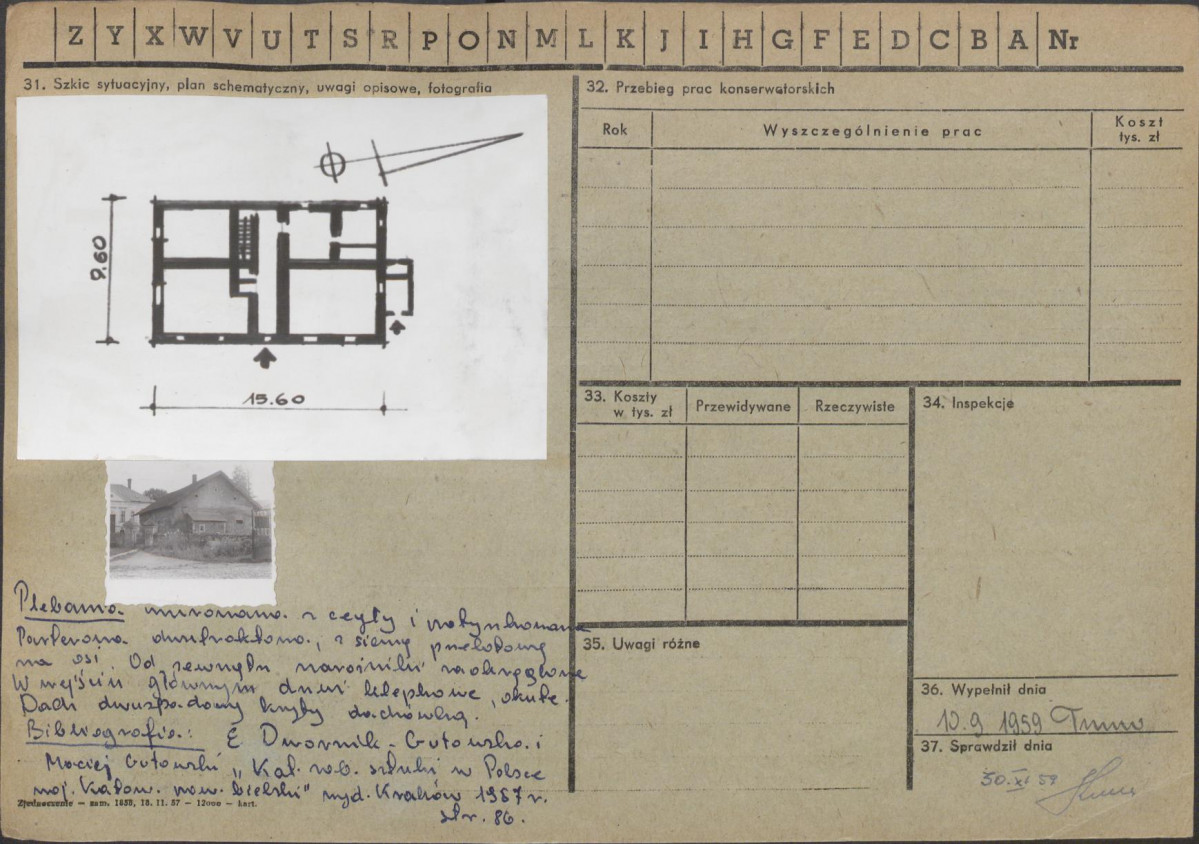 Z Y X W V U T S R P O N M L K J I H G F E D C B A Nr
31. Szkic sytuacyjny, plan schematyczny, uwagi opisowe, fotografia
9.60
15.60
Plebania murowana z cegły i potynkowana
Parterowa dwutraktowa, z sienią przelotową
na osi. Od zewnątrz narożniki zaokrąglone
W wejściu głównym drzwi klepkowe, okute.
Dach dwuspadowy kryty dachówką.
Bibliografia: E Dwornik-Gutowska i
Maciej Gutowski „Kat. zab. sztuki w Polsce
woj. Katow. pow. bielski" wyd. Kraków 1957 r.
str. 86.
Zjednoczenie — zam. 1658, 18. 11. 57 — 12000 — kart.
32. Przebieg prac konserwatorskich
Rok Wyszczególnienie prac Koszt tys. zł
33. Koszty w tys. zł Przewidywane Rzeczywiste
34. Inspekcje
35. Uwagi różne
36. Wypełnił dnia
10.9 1959
37. Sprawdził dnia
30.XI 59